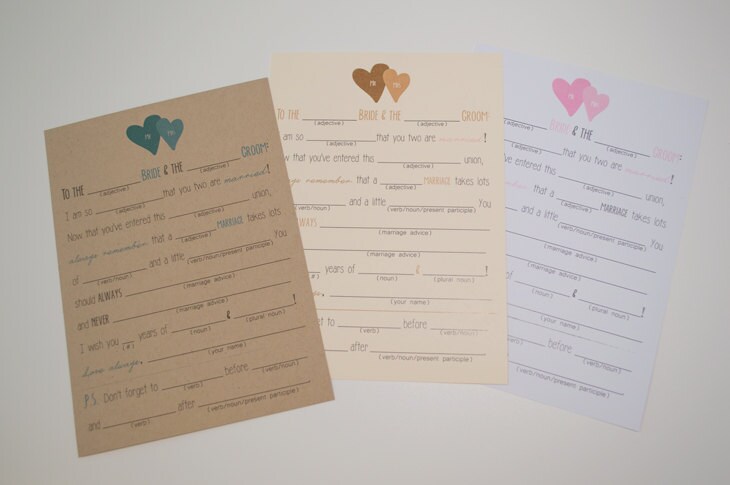 TO THE ______ BRIDE & THE ______ GROOM:
(adjective) (adjective)
I am so ______ that you two are married!
(adjective)
Now that you've entered this ______ union,
(adjective)
always remember that a ______ MARRIAGE takes lots
(adjective)
of ______ and a little ______. You
(verb/noun) (verb/noun/present participle)
should ALWAYS ______
(marriage advice)
and NEVER ______
(marriage advice)
I wish you ___ years of ______ & ______!
(#) (noun) (plural noun)
love always, ______
(your name)
P.S. Don't forget to ______ before ______
(verb) (verb/noun/present participle)
and ______ after ______
(verb) (verb/noun/present participle)
TO THE ______ BRIDE & THE ______ GROOM:
(adjective) (adjective)
am so ______ that you two are married!
(adjective)
Now that you've entered this ______ union,
(adjective)
always remember that a ______ MARRIAGE takes lots
(adjective)
______ and a little ______. You
(verb/noun/present participle)
ALWAYS ______
(marriage advice)
(marriage advice)
years of ______ & ______!
(#) (noun) (plural noun)
(your name)
to ______ before ______
(verb) (verb/noun/present participle)
______ after ______
(verb/noun/present participle)
BRIDE & THE ______ GROOM:
(adjective)
that you two are married!
entered this ______ union,
(adjective)
that a ______ MARRIAGE takes lots
(adjective)
and a little ______. You
(verb/noun/present participle)
(marriage advice)
(marriage advice)
of ______ & ______!
(noun) (plural noun)
(your name)
before ______
(verb/noun/present participle)
(verb/noun/present participle)